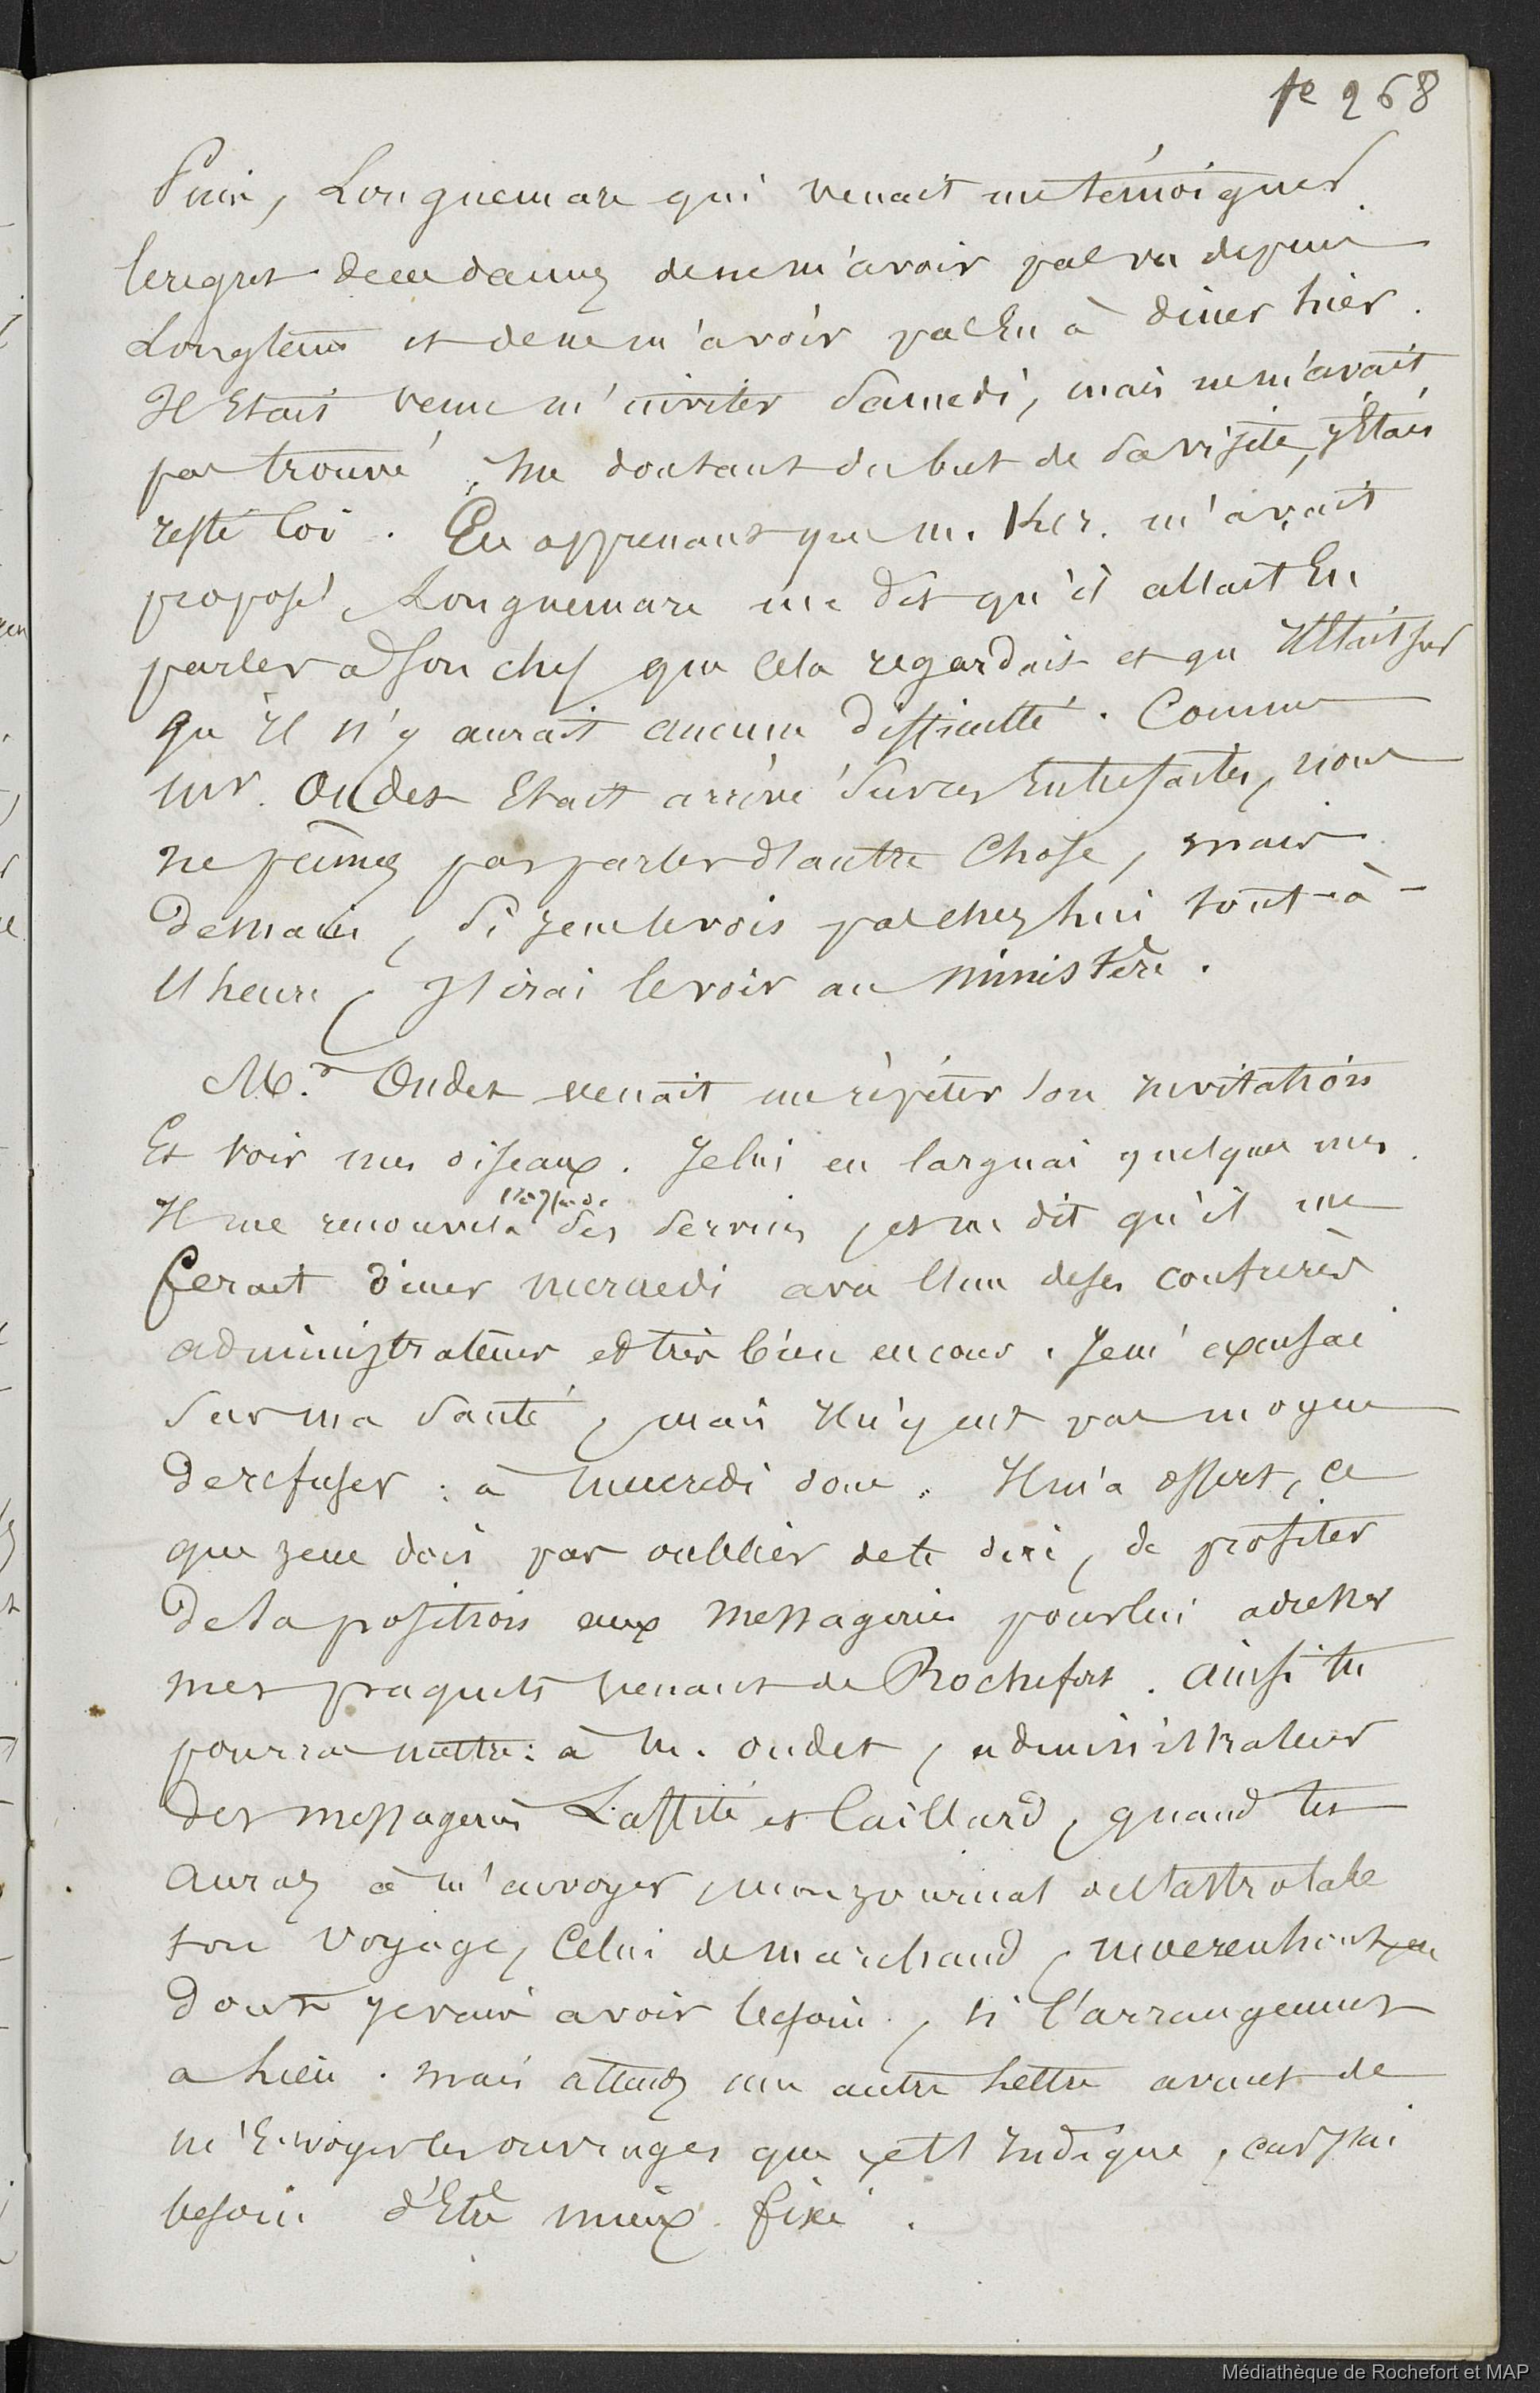 fe 268
Puis, Longuemare qui venait me témoigner
le regret de ces dames de ne m'avoir pas vu depuis
Longtems et de ne m'avoir pas Eu à diner hier.
Il Etait venu m'inviter Samedi, mais ne m'avait
pas trouvé, me doutant du but de Sa visite, j'Etais
resté coi. En apprenant que m. Ker. m'avait
proposé, Longuemare me dit qu'il allait En
parler à Son chef que Cela regardait et qu'Il Etait sur
qu'Il n'y aurait aucune difficulté. Comme
mr. Oudet Etait arrivé Sur ces Entrefaites, nous
ne pûmes pas parler d'autre Chose, mais
demain, Si je ne le vois pas chez lui tout-à-
l'heure, J'irai le voir au ministère.
Mr. Oudet venait me répéter son invitation
Et voir mes oiseaux. Je lui en larguai quelques uns.
Il me renouvela Ses Services, et me dit qu'il me
ferait diner mercredi avec l'un de ses confrères
administrateurs et très bien en cour. Je m'excusai
Sur ma Santé, mais Il n'y eut pas moyen
de refuser : à mercredi donc. Il m'a offert, ce
que je ne dois pas oublier de te dire, de profiter
de Sa position aux messageries pour lui adresser
mes paquets venant de Rochefort. Ainsi tu
pourras mettre : à M. oudet, administrateur
des messageries Laffite et Caillard, quand tu
auras à m'envoyer, mon journal de l'astrolabe
ton voyage, Celui de marchand,
dont je vais avoir besoin, si l'arrangement
a lieu. mais attends une autre lettre avant de
m'Envoyer les ouvrages que je t'Indique, car j'ai
besoin d'Etre mieux fixé.